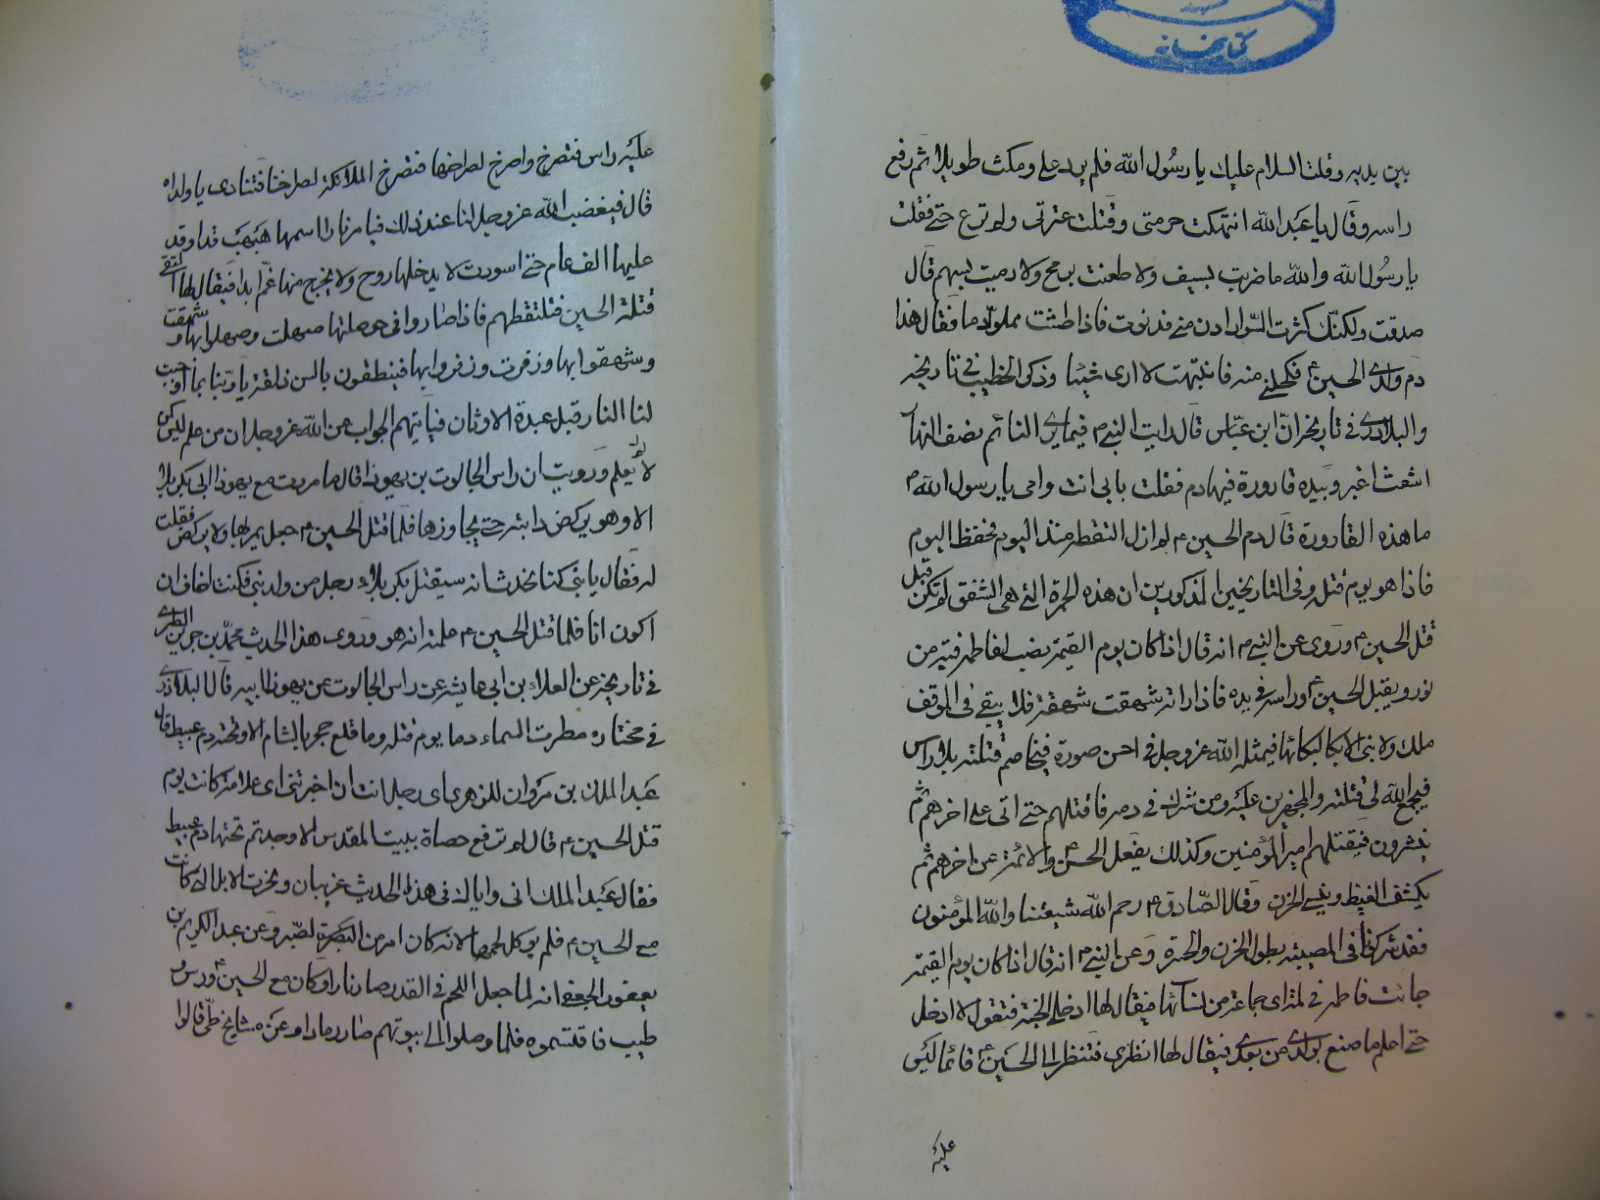 كتابخانه
بين يديه وقلت السلام عليك يا رسول الله فلم يرد علي ومكث طويلا ثم رفع
راسه وقال يا عبد الله انتهكت حرمتي وقتلت عترتي ولم ترع حتى فقلت
يا رسول الله والله ما ضربت بسيف ولا طعنت برمح ولا رميت بسهم قال
صدقت ولكنك كثرت السواد ادن مني فدنوت فاذا طشت مملو دما فقال هذا
دم ولدي الحسين ع فكحلني منه فانتبهت لا ارى شيئا وذكر الخطيب في تاريخه
والبلاذري في تاريخه ان ابن عباس قال رايت النبي ص فيما يرى النائم نصف النهار
اشعث اغبر وبيده قارورة فيها دم فقلت بابي انت وامي يا رسول الله ص
ما هذه القارورة قال دم الحسين ع لم ازل التقطه منذ اليوم فحفظ اليوم
فاذا هو يوم قتله وفي التاريخين المذكورين ان هذه الحمرة التي هي الشفق لم تكن قبل
قتل الحسين ع وروى عن النبي ص انه قال اذا كان يوم القيمة نصب لفاطمة قبة من
نور ويقبل الحسين ع وراسه في يده فاذا راته شهقت شهقة فلا يبقى في الموقف
ملك ولا نبي الا بكا لبكائها فيمثله الله عز وجل في احسن صورة فيخاصم قتلته بلا راس
فيجمع الله لي قتلته والمجهزين عليه ومن شرك في دمه فاقتلهم حتى اتى على اخرهم ثم
ينشرون فيقتلهم امير المؤمنين وكذلك يفعل الحسن والائمة عن اخرهم ثم
يكشف الغيظ وينسي الحزن وقال الصادق ع رحم الله شيعتنا والله المؤمنون
فقد شركونا في المصيبة بطول الحزن والحسرة وعن النبي ص انه قال اذا كان يوم القيمة
جائت فاطمة في لمة اي جماعة من نسائها فيقال لها ادخلي الجنة فتقول لا ادخل
حتى اعلم ما صنع بولدي من بعدي فيقال لها انظري فتنظر الى الحسين ع قائما ليس
عليه
عليه راس فتصرخ واصرخ لصراخها فتصرخ الملائكة لصراخنا فتنادى يا ولداه
قال فيغضب الله عز وجل لنا عند ذلك فيامر نارا اسمها هبهب قد اوقد
عليها الف عام حتى اسودت لا يدخلها روح ولا يخرج منها غم ابدا فيقال لها التقطي
قتلة الحسين فتلتقطهم فاذا صاروا في حوصلتها صهلت وصهلوا بها وشهقت
وشهقوا بها وزفرت وزفروا بها فينطقون بالسن ذلقة يا ربنا بما اوجبت
لنا النار قبل عبدة الاوثان فياتيهم الجواب عن الله عز وجل ان من علم ليس كمن
لا يعلم ورويت ان راس الجالوت بن يهوذا قال ما مررت مع يهوذا ابي بكربلا
الا وهو يركض دابته حتى يجاوزها فلما قتل الحسين ع جعل يمر بها ولا يركض فقلت
له فقال يا بني كنا نحدث انه سيقتل بكربلاء رجل من ولد نبي فكنت اخاف ان
اكون انا فلما قتل الحسين ع علمت انه هو وروى هذا الحديث محمد بن جرير الطبري
في تاريخه عن العلاء بن ابي عايشة عن راس الجالوت عن يهوذا ابيه قال البلاذري
في مختاره مطرت السماء دما يوم قتله وما قلع حجر بالشام الا وتحته دم عبيط قال
عبد الملك بن مروان للزهري اي رجل انت ان اخبرتني اي علامة كانت يوم
قتل الحسين ع قال لم ترفع حصاة ببيت المقدس الا وجد تم تحتها دم عبيط
فقال عبد الملك اني واياك في هذا الحديث غريبان ونحرت الابل التي كانت
مع الحسين ع فلم يوكل لحمها لانه كان امر من الصبر وعن عبد الكريم بن
يعفور الجعفي انه لما جعل اللحم في القدر صار نارا وكان مع الحسين ع ورس و
طيب فاقتسموه فلما وصلوا الى بيوتهم صار رمادا وعن مشايخ طي قالوا